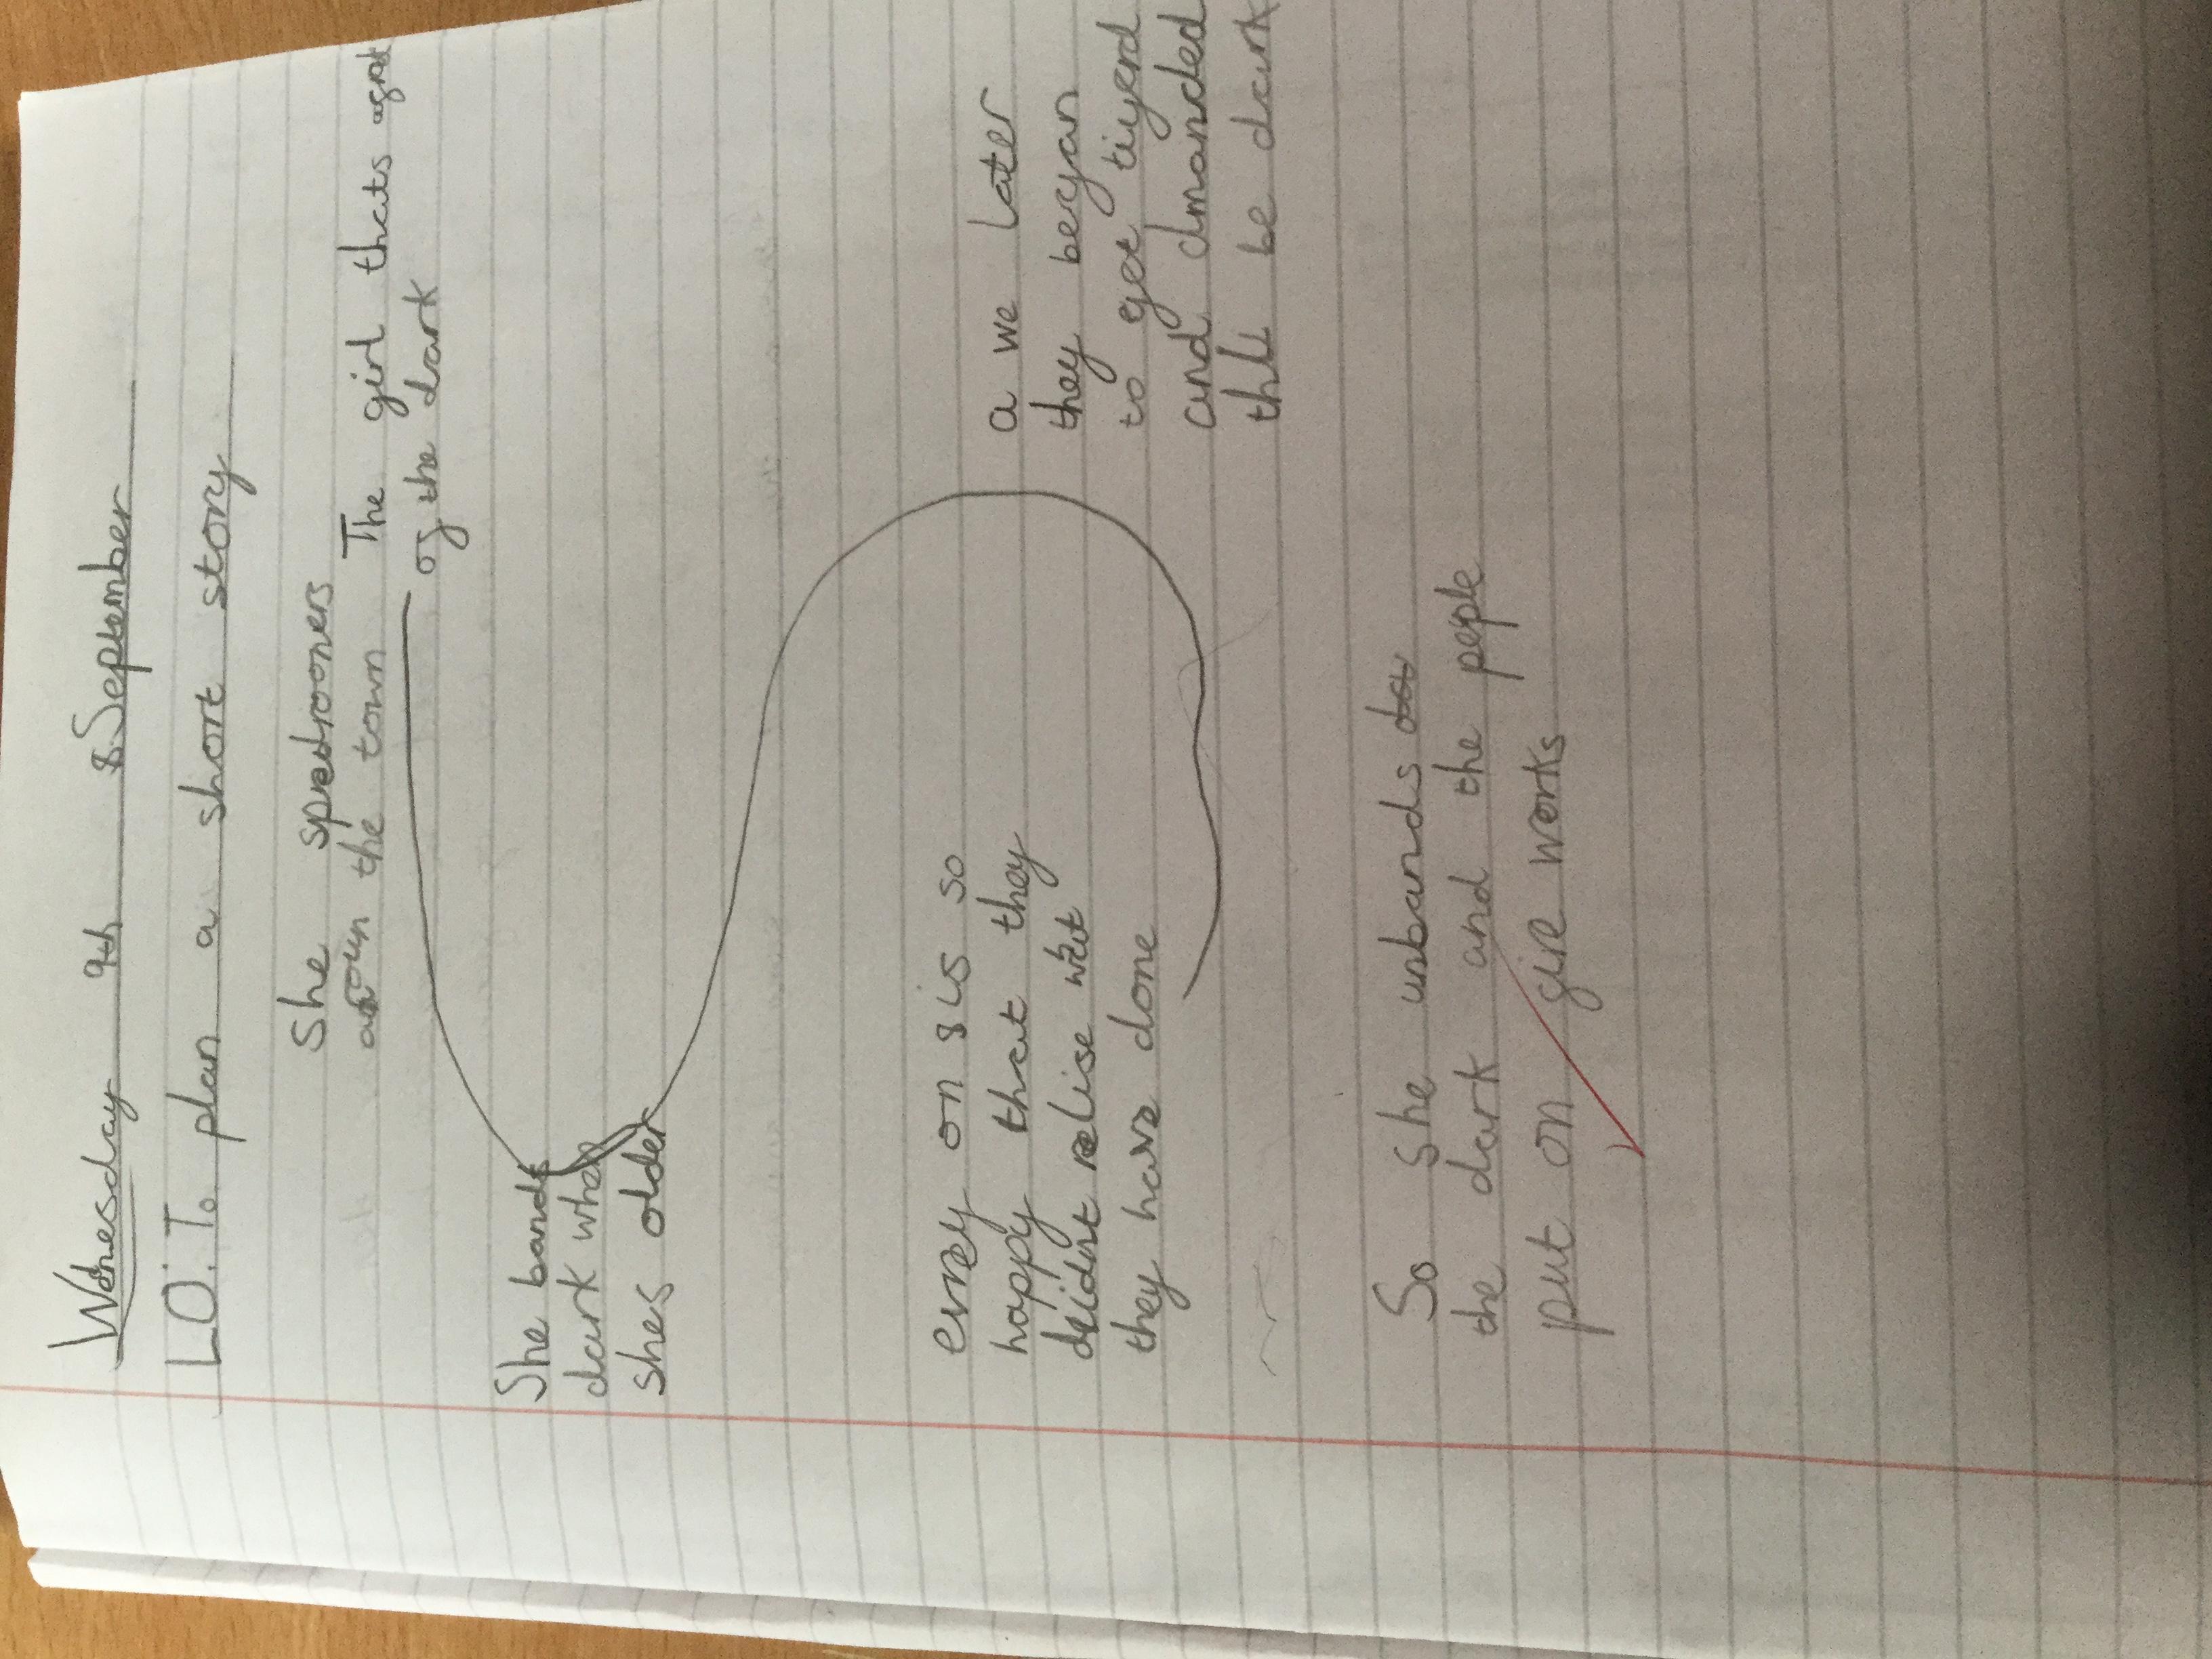 Wednesday 9th September
L.O: To plan a short story
She
aroun the town
The girl thats
of the dark
She bands
dark when
shes older
evrey on is so
happy that they
deidnt relise wat
they have done
a we later
they began
to get tiyerd
and dmanded
the be dark
So she unbands
the dark and the pepple
put on fire works